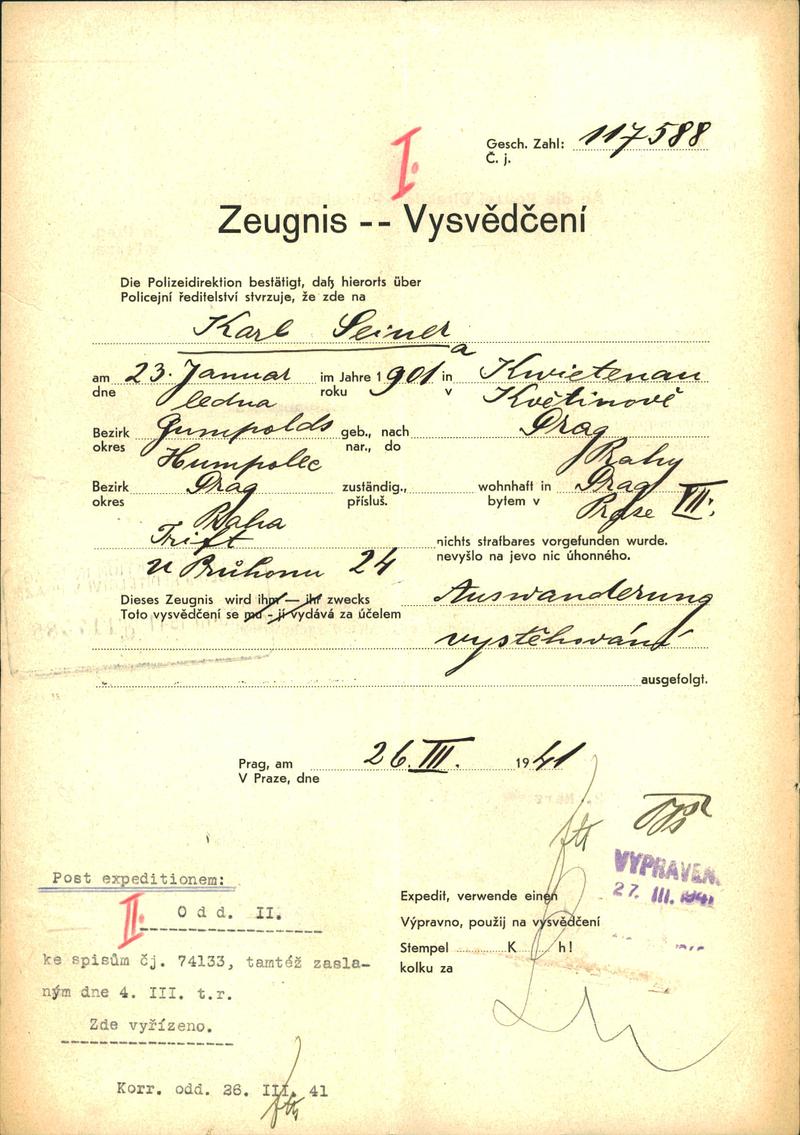 I.
Gesch. Zahl: 117588
Č. j.
Zeugnis -- Vysvědčení
Die Polizeidirektion bestätigt, daß hierorts über
Policejní ředitelství stvrzuje, že zde na
Karl Seiner
a
am 23. Januar im Jahre 1901 in Kwietenau
dne ledna roku v Květinově
Bezirk Gumpolds geb., nach Prag
okres Humpolec nar., do Prahy
Bezirk Prag zuständig., wohnhaft in Prag VII:
okres Praha přísluš. bytem v Praze
Trift nichts strafbares vorgefunden wurde.
U Průhonu 24 nevyšlo na jevo nic úhonného.
Dieses Zeugnis wird ihm — ihr zwecks Auswanderung
Toto vysvědčení se mu - jí vydává za účelem
vystěhování
ausgefolgt.
Prag, am 26. III. 1941
V Praze, dne
VYPRAVEN.
27. III. 1941
Post expeditionem:
II. Odd. II.
ke spisům čj. 74133, tamtéž zasla-
ným dne 4. III. t.r.
Zde vyřízeno.
Korr. odd. 26. III. 41
Expedit, verwende einen
Výpravno, použij na vysvědčení
Stempel K h!
kolku za